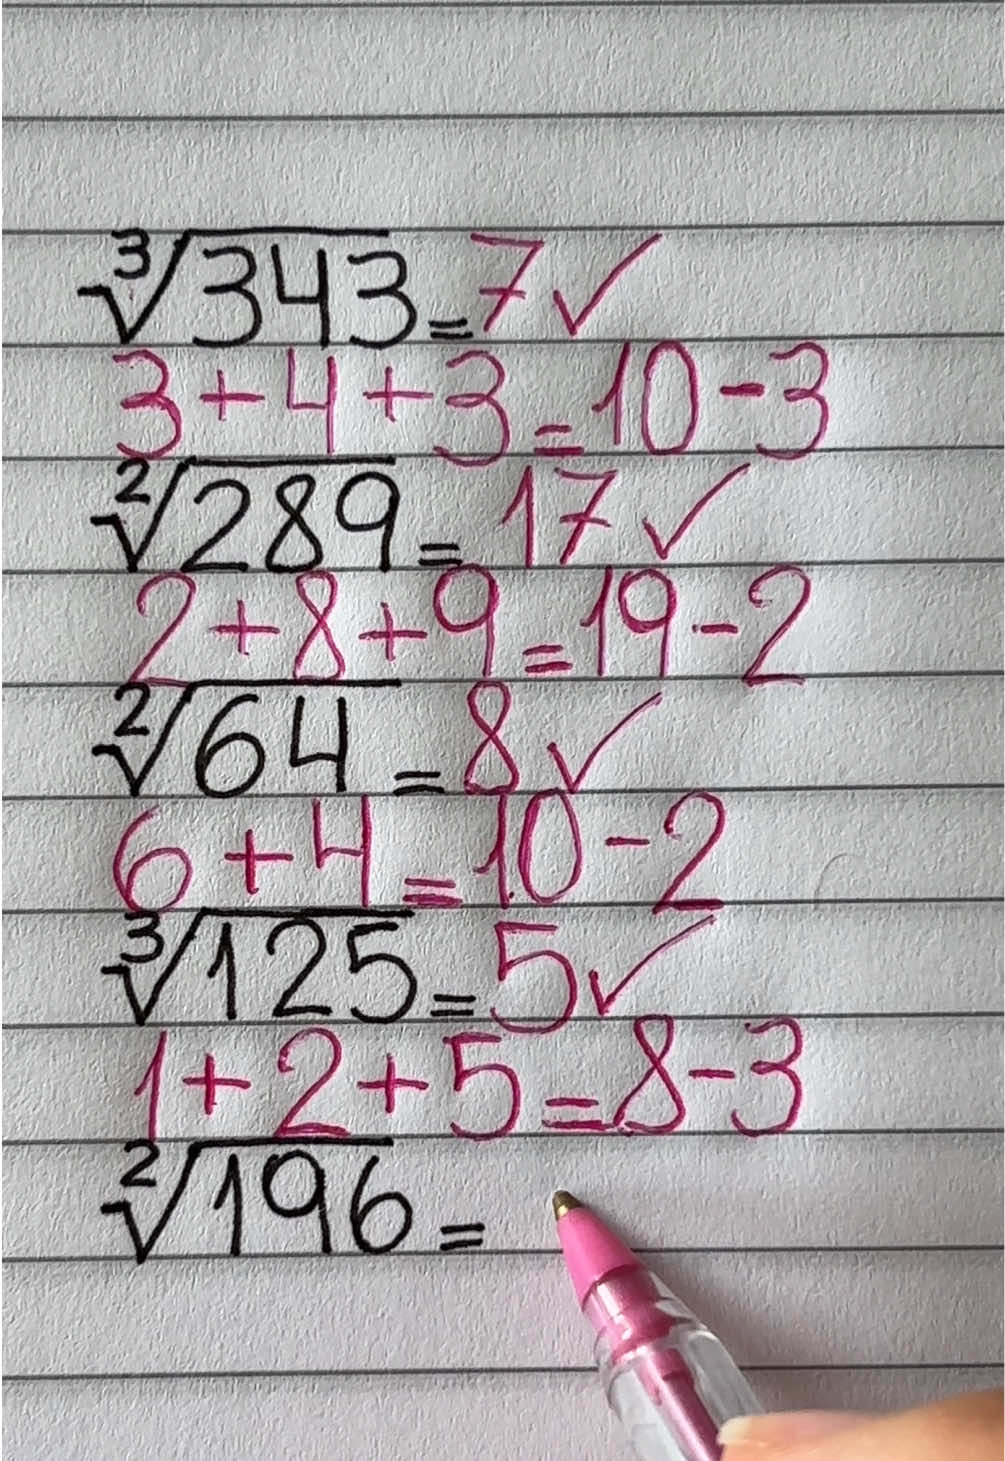 ∛343 = 7 ✓
3 + 4 + 3 = 10 - 3
²√289 = 17 ✓
2 + 8 + 9 = 19 - 2
²√64 = 8 ✓
6 + 4 = 10 - 2
∛125 = 5 ✓
1 + 2 + 5 = 8 - 3
²√196 =